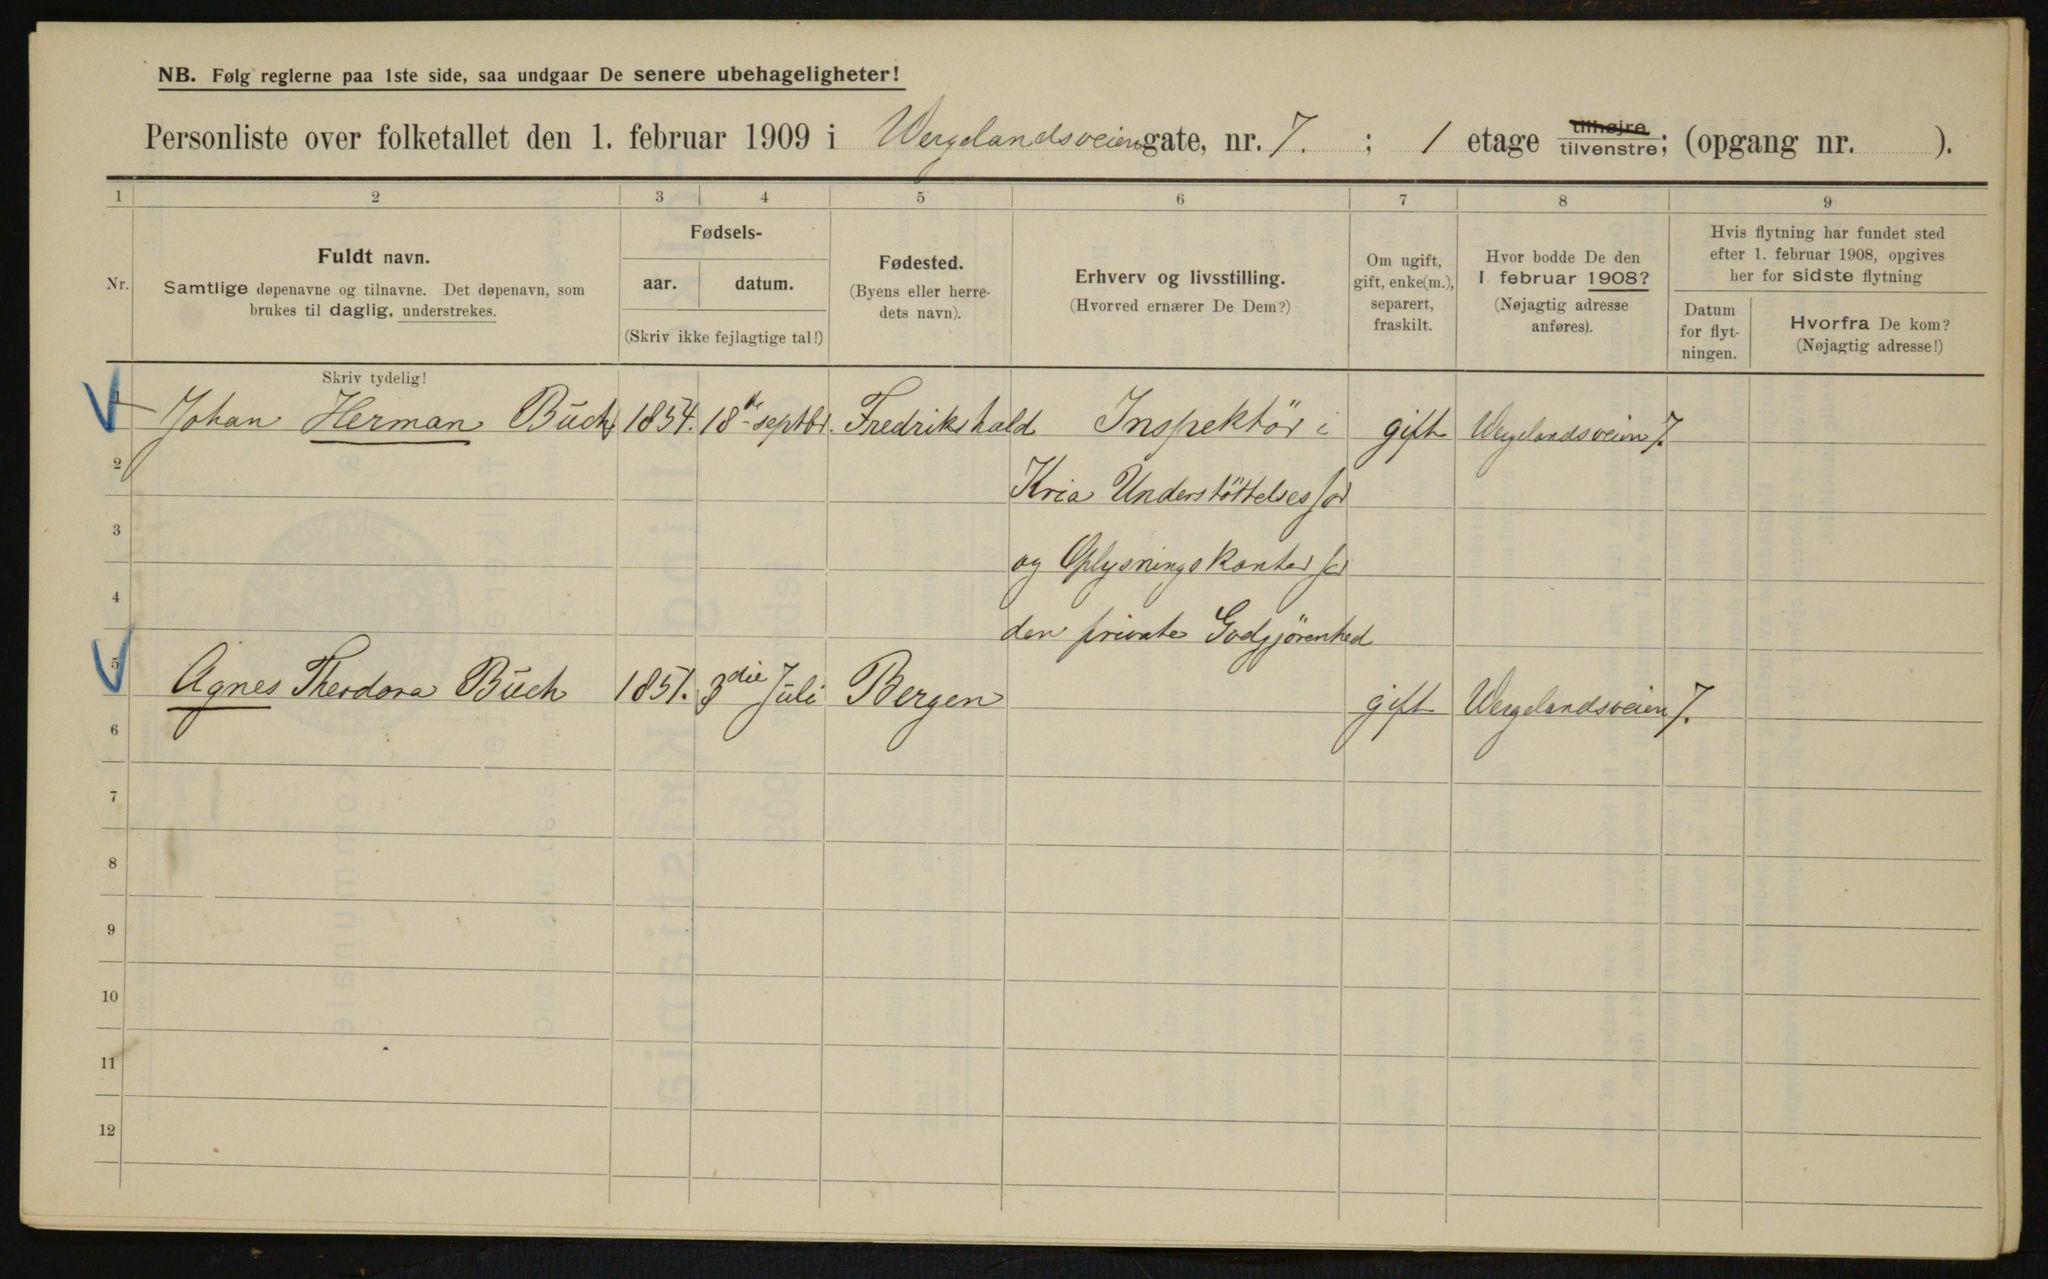 NB. Følg reglerne paa 1ste side, saa undgaar De senere ubehageligheter!
Personliste over folketallet den 1. februar 1909 i Wergelandsveien gate, nr. 7. ; 1 etage tilhøjre tilvenstre; (opgang nr. ).
1 2 3 4 5 6 7 8 9
Nr.
Fuldt navn.
Samtlige døpenavne og tilnavne. Det døpenavn, som
brukes til daglig, understrekes.
Skriv tydelig!
Fødsels-
aar. datum.
(Skriv ikke fejlagtige tal!)
Fødested.
(Byens eller herre-
dets navn).
Erhverv og livsstilling.
(Hvorved ernærer De Dem?)
Om ugift,
gift, enke(m.),
separert,
fraskilt.
Hvor bodde De den
1. februar 1908?
(Nøjagtig adresse
anføres).
Hvis flytning har fundet sted
efter 1. februar 1908, opgives
her for sidste flytning
Datum
for flyt-
ningen.
Hvorfra De kom?
(Nøjagtig adresse!)
Johan Herman Buch 1854. 18de septbr. Fredrikshald Inspektör i gift Wergelandsveien 7.
2 Kria Understöttelses for
3 og Oplysningskontor for
4 den private Godgjörenhed
5 Agnes Theodora Buch 1851. 3die Juli Bergen gift Wergelandsveien 7.
6
7
8
9
10
11
12